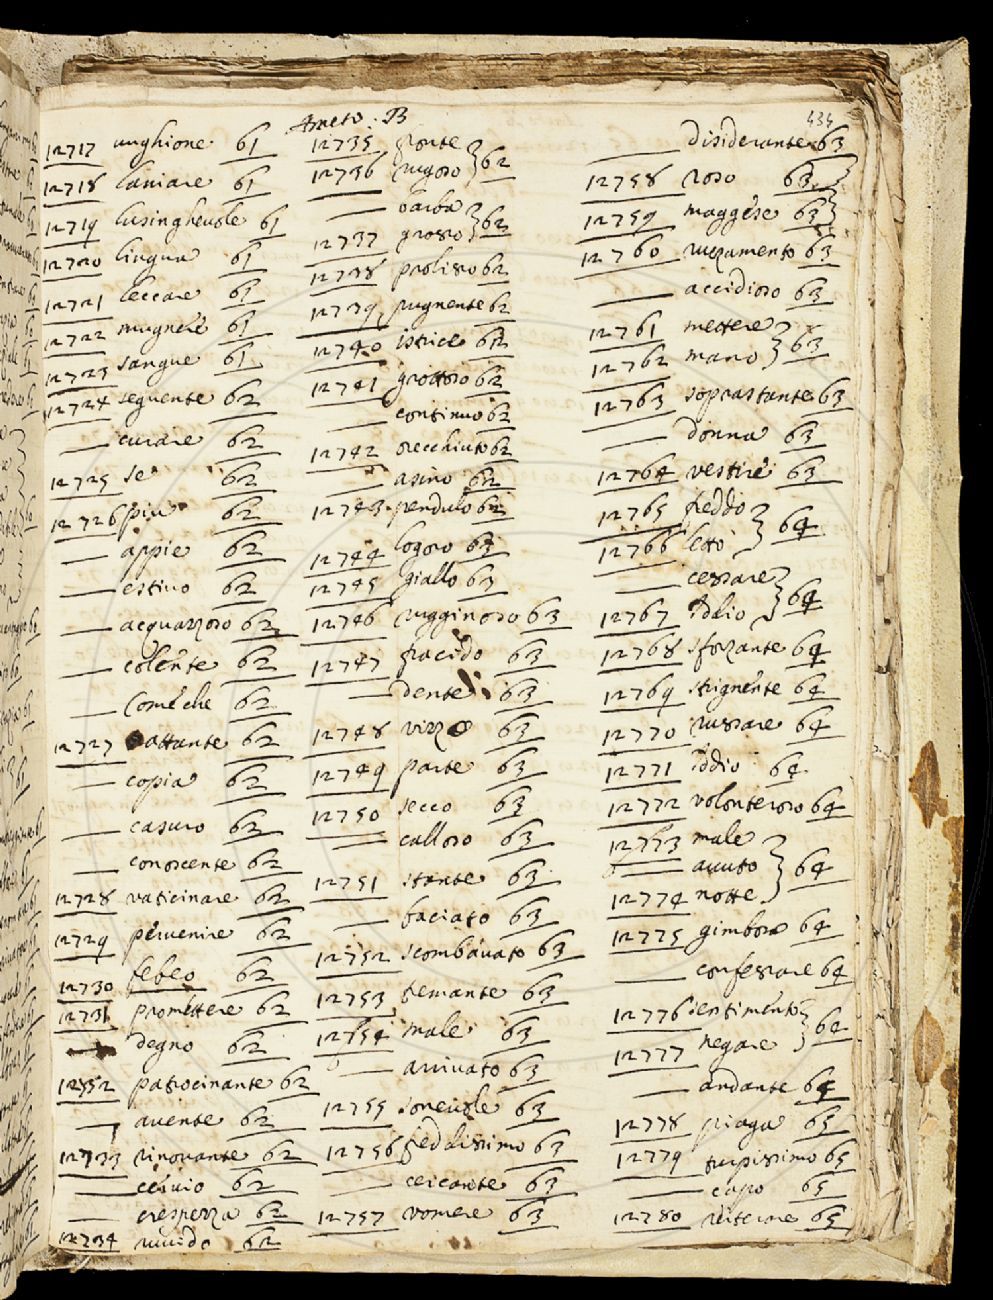 Ameto. B
434
12717 unghione 61
12718 laniare 61
12719 lusingheuole 61
12720 lingua 61
12721 leccare 61
12722 mugnere 61
12723 sangue 61
12724 seguente 62
— curare 62
12725 se 62
12726 piu 62
— appie 62
— estiuo 62
— acquazzoso 62
— colente 62
— Come che 62
12727 attante 62
— copia 62
— casuro 62
— conoscente 62
12728 vaticinare 62
12729 peruenire 62
12730 febeo 62
12731 promettere 62
— degno 62
12732 patrocinante 62
— auente 62
12733 rinouante 62
— 62
— crespezza 62
12734 ruuido 62
12735 fronte
12736 rugoso } 62
— barba
12737 grosso } 62
12738 prolisso 62
12739 pugnente 62
12740 istrice 62
12741 grottoso 62
— continuo 62
12742 orecchiuto 62
— asino 62
12743 pendulo 62
12744 logoro 63
12745 giallo 63
12746 rugginoso 63
12747 fracido 63
— dente 63
12748 vizzo 63
12749 parte 63
12750 secco 63
— calloso 63
12751 stante 63
— baciato 63
12752 scombauato 63
12753 tremante 63
12754 male 63
— arriuato 63
12755 63
12756 freddissimo 63
— cercante 63
12757 vomere 63
— disiderante 63
12758 roso 63
12759 maggese 63
12760 ruzzamento 63
— accidioso 63
12761 mettere
12762 mano } 63
12763 soprastante 63
— donna 63
12764 vestire 63
12765 freddo
12766 letto } 64
— cessare
12767 Iddio } 64
12768 sforzante 64
12769 strignente 64
12770 russare 64
12771 iddio 64
12772 volonteroso 64
12773 male
— auuto
12774 notte } 64
12775 64
— confessare 64
12776 sentimento
12777 negare } 64
— andante 64
12778 piaga 65
12779 turpissimo 65
— capo 65
12780 reiterare 65